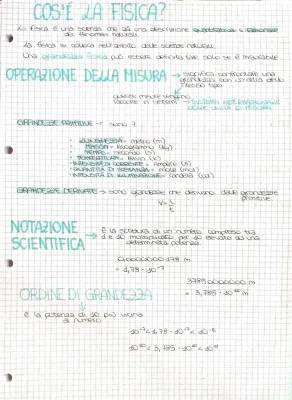 COS'È LA FISICA?
La fisica è una scienza che dà una descrizione quantitativa e razionale
dei fenomeni naturali.
La fisica si colloca nell'ambito delle scienze naturali.
Una grandezza fisica può essere definita tale solo se è misurabile
OPERAZIONE DELLA MISURA → significa confrontare una
grandezza con un'altra dello
stesso tipo
queste misure vengono
raccolte in sistemi → SISTEMA INTERNAZIONALE
DELLE UNITÀ DI MISURA
GRANDEZZE PRIMITIVE → sono 7
• LUNGHEZZA - metro (m)
• MASSA - kilogrammo (kg)
• TEMPO - secondo (s)
• TEMPERATURA - kelvin (k)
• INTENSITÀ DI CORRENTE - Ampere (A)
• QUANTITÀ DI SOSTANZA - mole (mol)
• INTENSITÀ DI ILLUMINAZIONE - candela (cd)
GRANDEZZE DERIVATE → sono grandezze che derivano dalle grandezze
primitive
V = s/t
NOTAZIONE SCIENTIFICA → È la scrittura di un numero compreso tra
1 e 10 moltiplicato per 10 elevato ad una
determinata potenza.
0,000000178 m
= 1,78 · 10⁻⁷
37850000000 m
= 3,785 · 10¹⁰ m
ORDINE DI GRANDEZZA
È la potenza di 10 più vicina
al numero
10⁻⁷ < 1,78 · 10⁻⁷ < 10⁻⁶
10¹⁰ < 3,785 · 10¹⁰ < 10¹¹